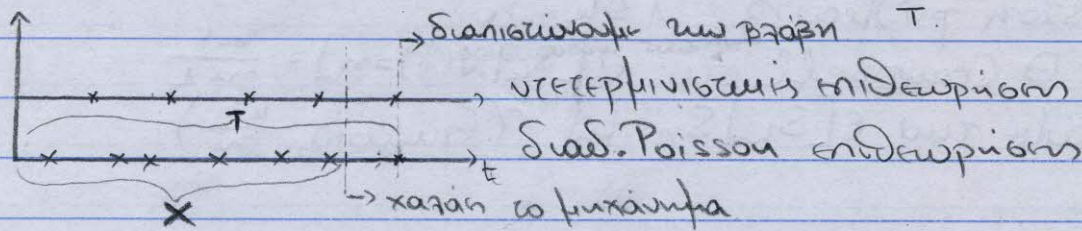 διαπιστώνουμε την βλάβη T.
ντετερμινιστικής επιθεωρήσεις
T
διαδ. Poisson επιθεωρήσεις
t
X
χαλάει το μηχάνημα